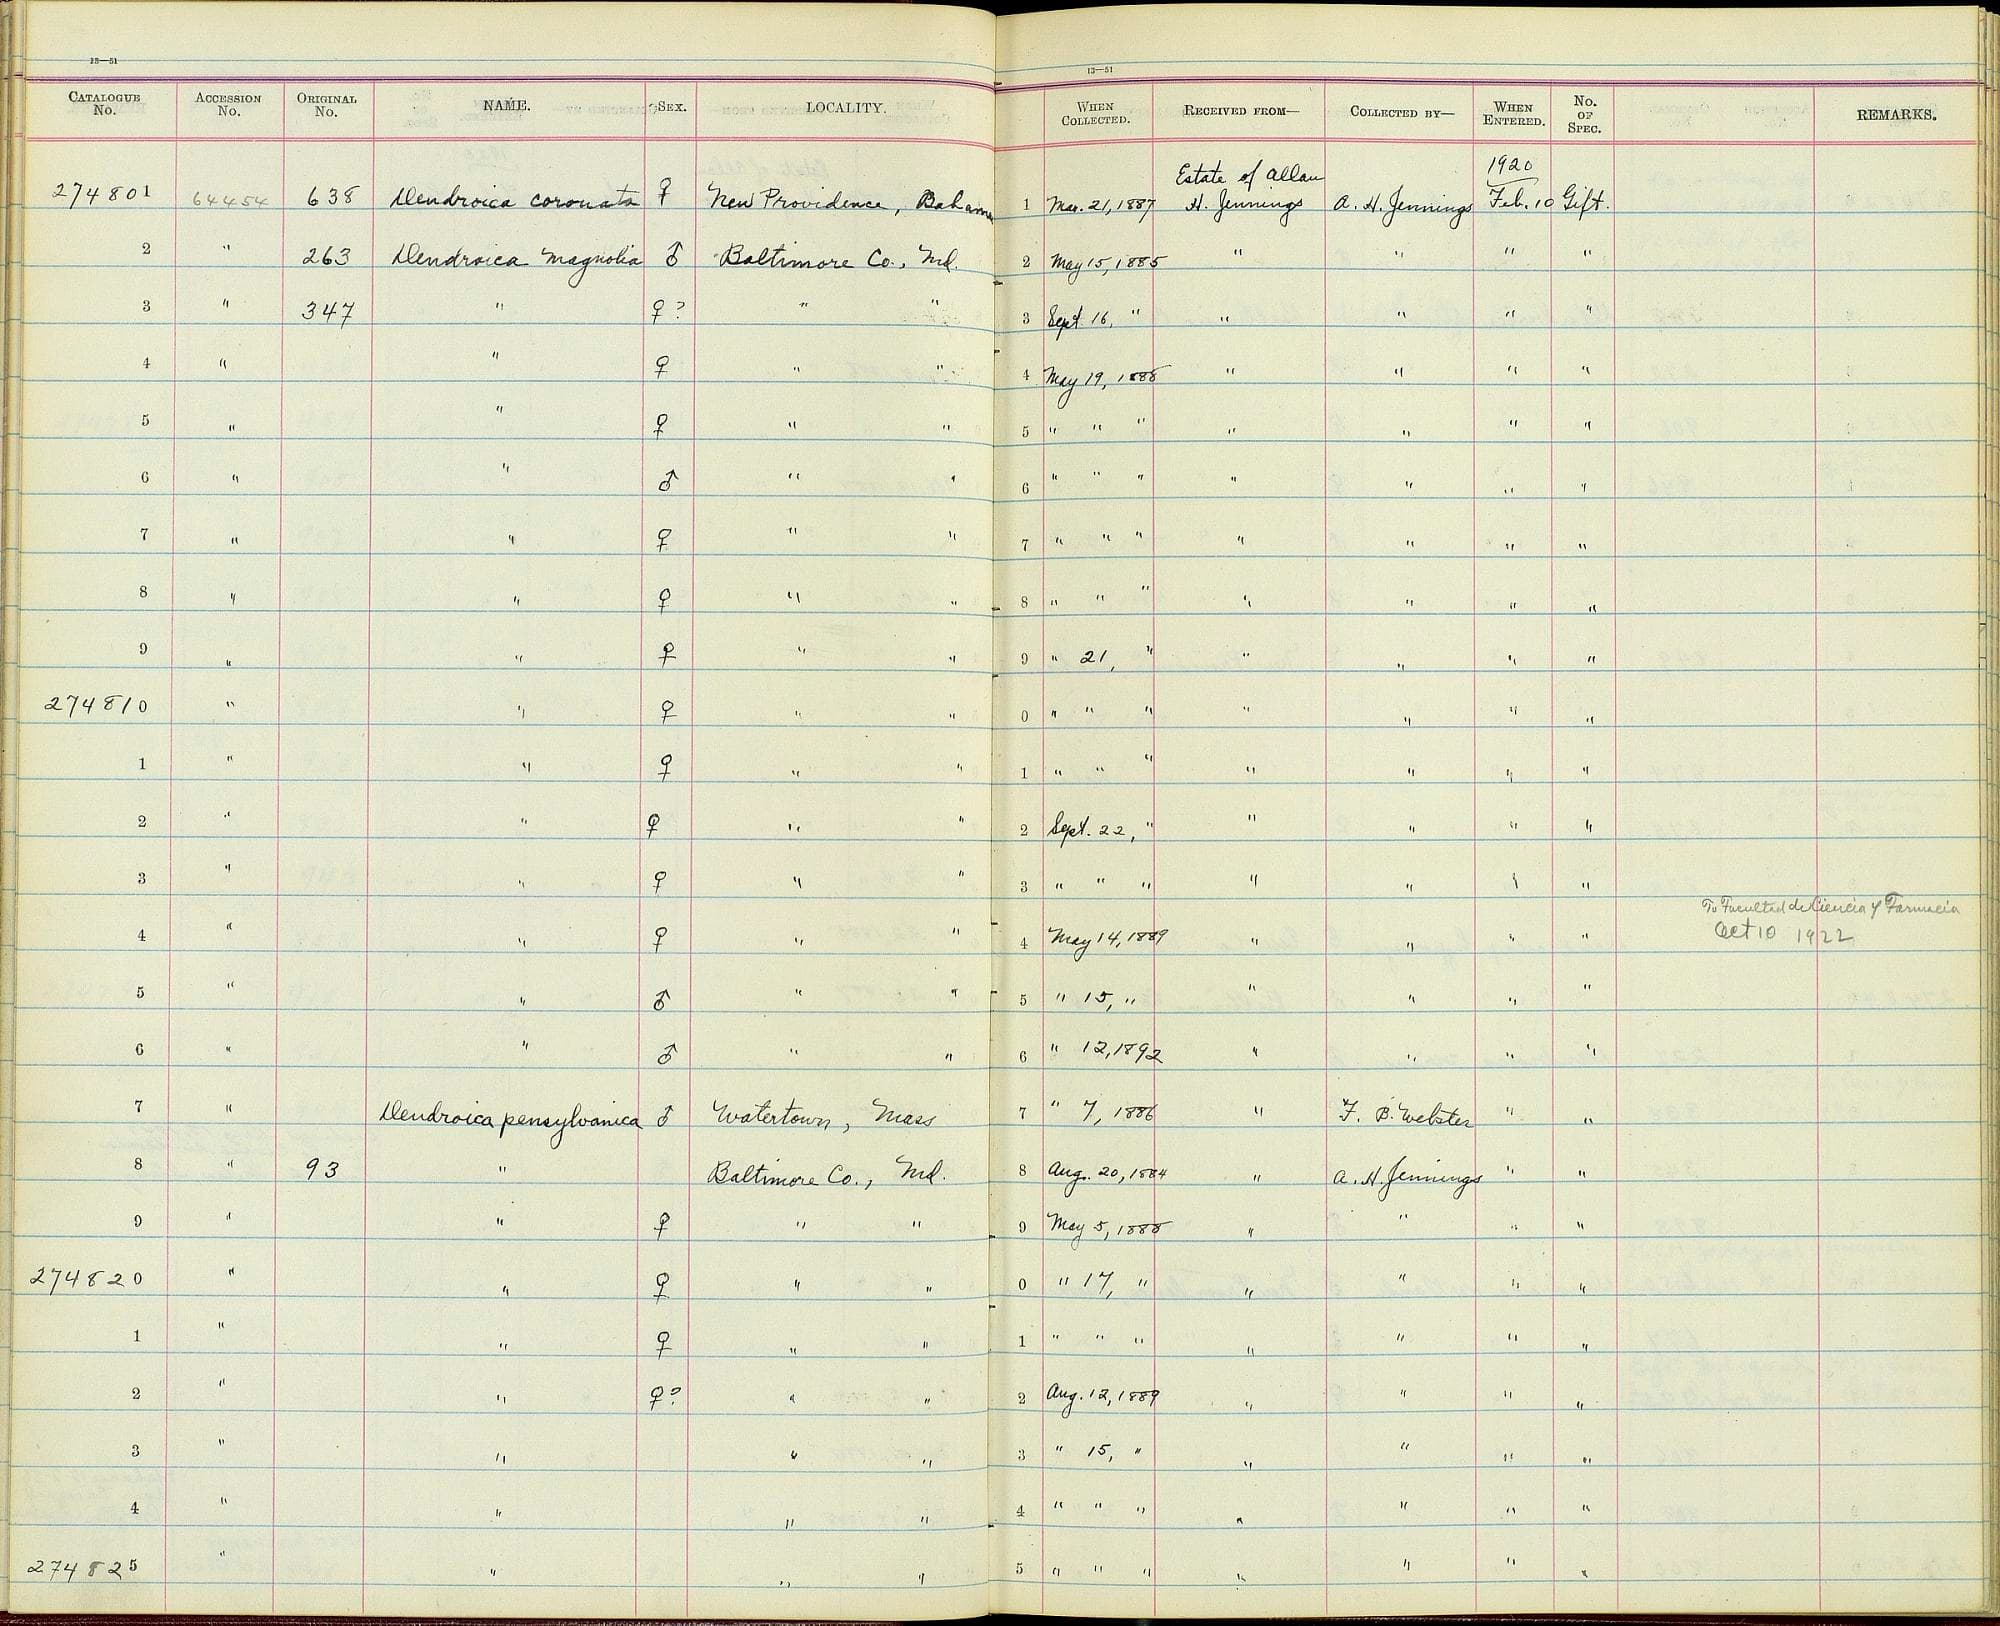 13—51
CATALOGUE No. ACCESSION No. ORIGINAL No. NAME. SEX. LOCALITY.
274801 64454 638 Dendroica coronata ♀ New Providence, Bahamas
2 " 263 Dendroica magnolia ♂ Baltimore Co., Md.
3 " 347 " ♀? " "
4 " " ♀ " "
5 " " ♀ " "
6 " " ♂ " "
7 " " ♀ " "
8 " " ♀ " "
9 " " ♀ " "
274810 " " ♀ " "
1 " " ♀ " "
2 " " ♀ " "
3 " " ♀ " "
4 " " ♀ " "
5 " " ♂ " "
6 " " ♂ " "
7 " Dendroica pensylvanica ♂ Watertown, Mass
8 " 93 " Baltimore Co., Md.
9 " " ♀ " "
274820 " " ♀ " "
1 " " ♀ " "
2 " " ♀? " "
3 " " " "
4 " " " "
274825 " " " "
13—51
WHEN COLLECTED. RECEIVED FROM— COLLECTED BY— WHEN ENTERED. No. OF SPEC. REMARKS.
1920
Estate of Allan
1 Mar. 21, 1887 H. Jennings A. H. Jennings Feb. 10 Gift.
2 May 15, 1885 " " " "
3 Sept. 16, " " " " "
4 May 19, 1888 " " " "
5 " " " " " " "
6 " " " " " " "
7 " " " " " " "
8 " " " " " " "
9 " 21, " " " " "
0 " " " " " " "
1 " " " " " " "
2 Sept. 22, " " " " "
3 " " " " " " "
To Facultad de Ciencia y Farmacia
4 May 14, 1889 " " " " Oct 10 1922
5 " 15, " " " " "
6 " 12, 1892 " " " "
7 " 7, 1886 " F. B. Webster " "
8 Aug. 20, 1884 " A. H. Jennings " "
9 May 5, 1888 " " " "
0 " 17, " " " " "
1 " " " " " " "
2 Aug. 12, 1889 " " " "
3 " 15, " " " " "
4 " " " " " " "
5 " " " " " " "